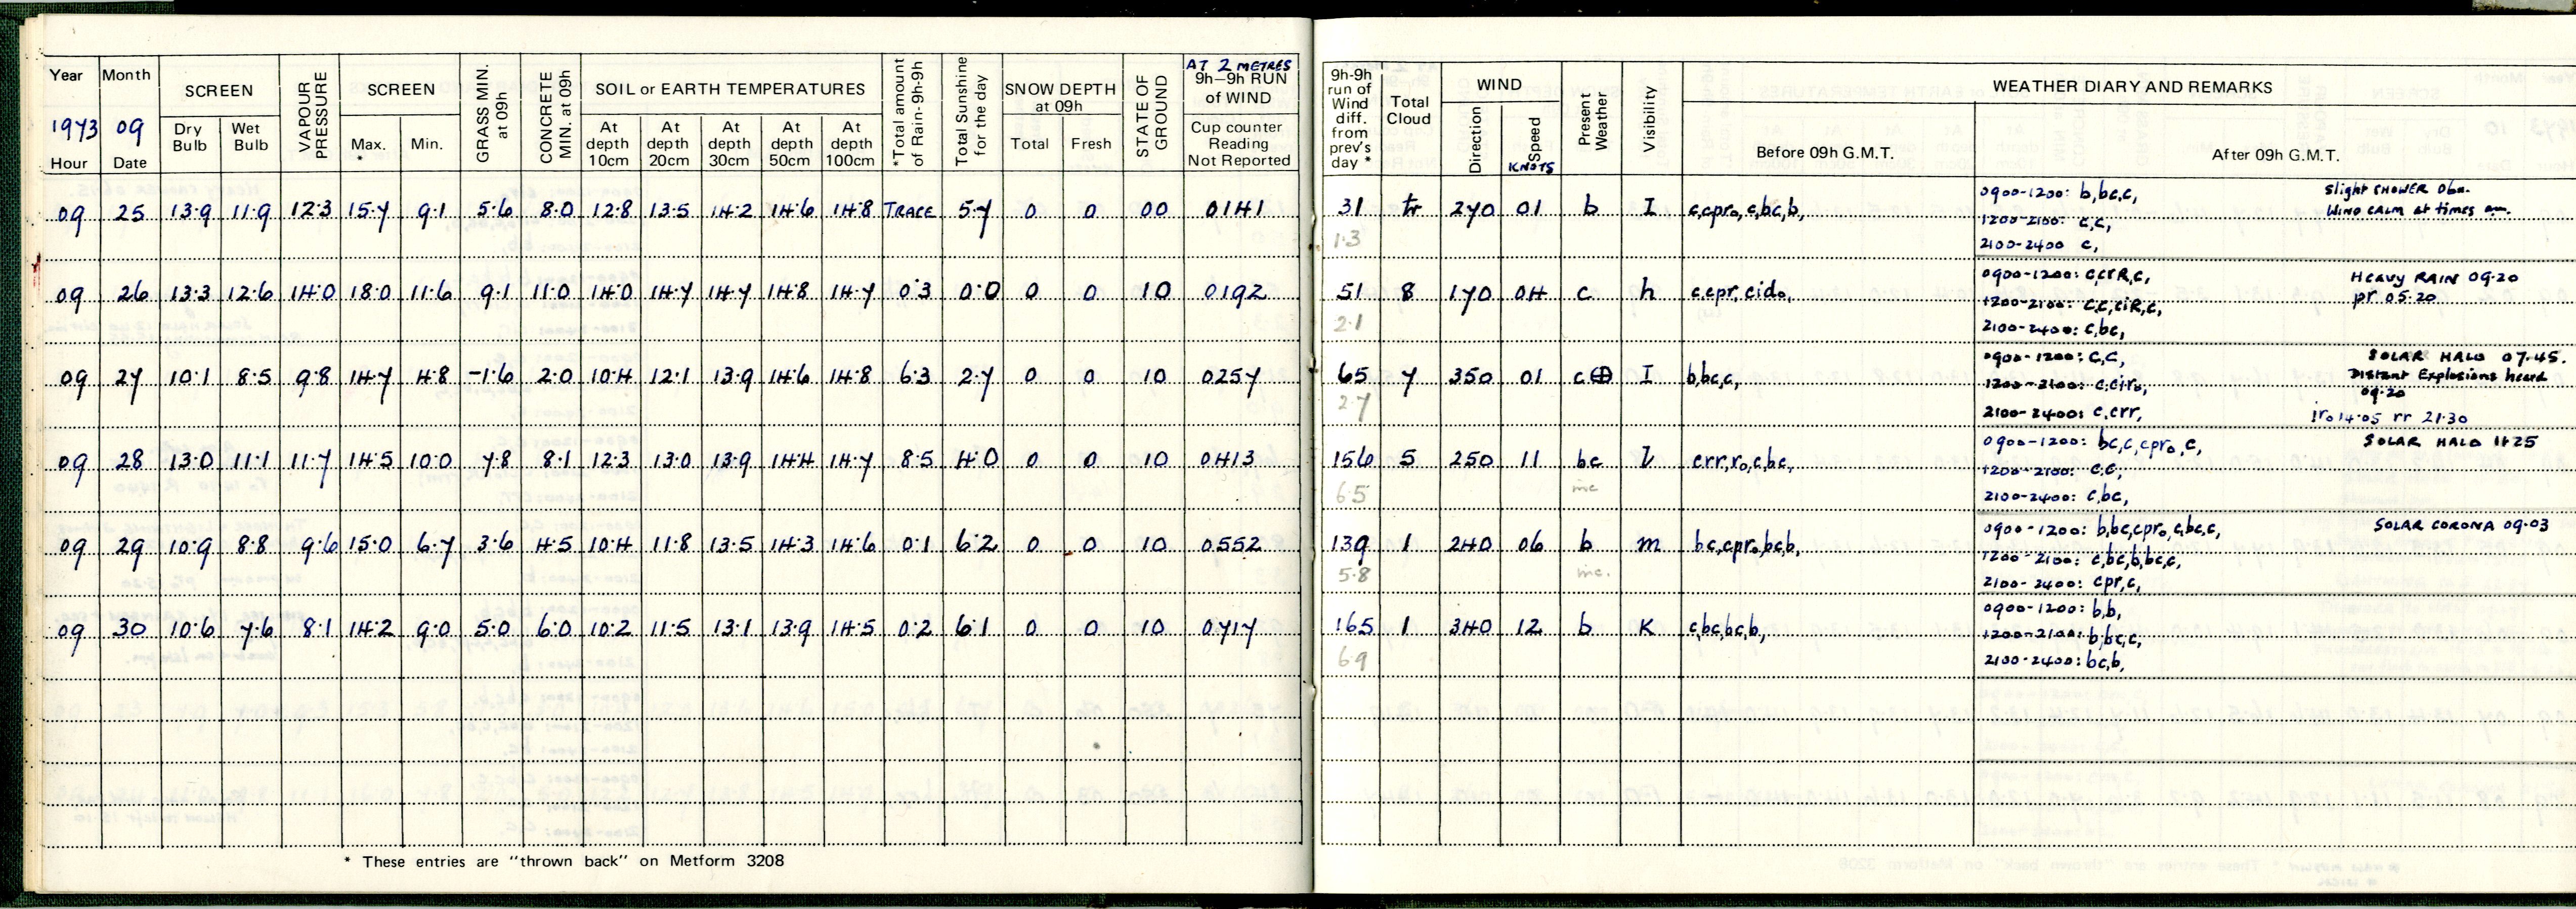 Year Month SCREEN VAPOUR PRESSURE SCREEN GRASS MIN. at 09h CONCRETE MIN. at 09h SOIL or EARTH TEMPERATURES *Total amount of Rain-9h-9h Total Sunshine for the day SNOW DEPTH at 09h STATE OF GROUND AT 2 METRES 9h-9h RUN of WIND
1973 09 Dry Bulb Wet Bulb Max. * Min. At depth 10cm At depth 20cm At depth 30cm At depth 50cm At depth 100cm Total Fresh Cup counter Reading Not Reported
Hour Date
09 25 13.9 11.9 12.3 15.7 9.1 5.6 8.0 12.8 13.5 14.2 14.6 14.8 TRACE 5.7 0 0 00 0141
09 26 13.3 12.6 14.0 18.0 11.6 9.1 11.0 14.0 14.7 14.7 14.8 14.7 0.3 0.0 0 0 10 0192
09 27 10.1 8.5 9.8 14.7 4.8 -1.6 2.0 10.4 12.1 13.9 14.6 14.8 6.3 2.7 0 0 10 0257
09 28 13.0 11.1 11.7 14.5 10.0 7.8 8.1 12.3 13.0 13.9 14.4 14.7 8.5 4.0 0 0 10 0413
09 29 10.9 8.8 9.6 15.0 6.7 3.6 4.5 10.4 11.8 13.5 14.3 14.6 0.1 6.2 0 0 10 0552
09 30 10.6 7.6 8.1 14.2 9.0 5.0 6.0 10.2 11.5 13.1 13.9 14.5 0.2 6.1 0 0 10 0717
* These entries are "thrown back" on Metform 3208
9h-9h run of Wind diff. from prev's day * Total Cloud WIND Present Weather Visibility WEATHER DIARY AND REMARKS
Direction Speed KNOTS Before 09h G.M.T. After 09h G.M.T.
31 tr 270 01 b I c,cpr₀,c,bc,b, 0900-1200: b,bc,c, Slight SHOWER 06
1.3 1200-2100: c,c, WIND CALM at times am.
2100-2400 c,
51 8 170 04 c h c,cpr,cid₀, 0900-1200: c,crR,c, HEAVY RAIN 09.20
2.1 1200-2100: c,c,ciR,c, pr 05.20
2100-2400: c,bc,
65 7 350 01 c⊕ I b,bc,c, 0900-1200: c,c, SOLAR HALO 07.45.
2.7 1200-2100: c,cir₀, Distant Explosions heard
09.20
2100-2400: c,crr, ir₀14.05 rr 21.30
156 5 250 11 bc crr,r₀,c,bc, 0900-1200: bc,c,cpr₀,c, SOLAR HALO 1425
6.5 inc 1200-2100: c,c,
2100-2400: c,bc,
139 1 240 06 b m bc,cpr₀,bc,b, 0900-1200: b,bc,cpr₀,c,bc,c, SOLAR CORONA 09.03
5.8 inc. 1200-2100: c,bc,b,bc,c,
2100-2400: cpr,c,
165 1 340 12 b K c,bc,bc,b, 0900-1200: b,b,
6.9 1200-2100: b,bc,c,
2100-2400: bc,b,